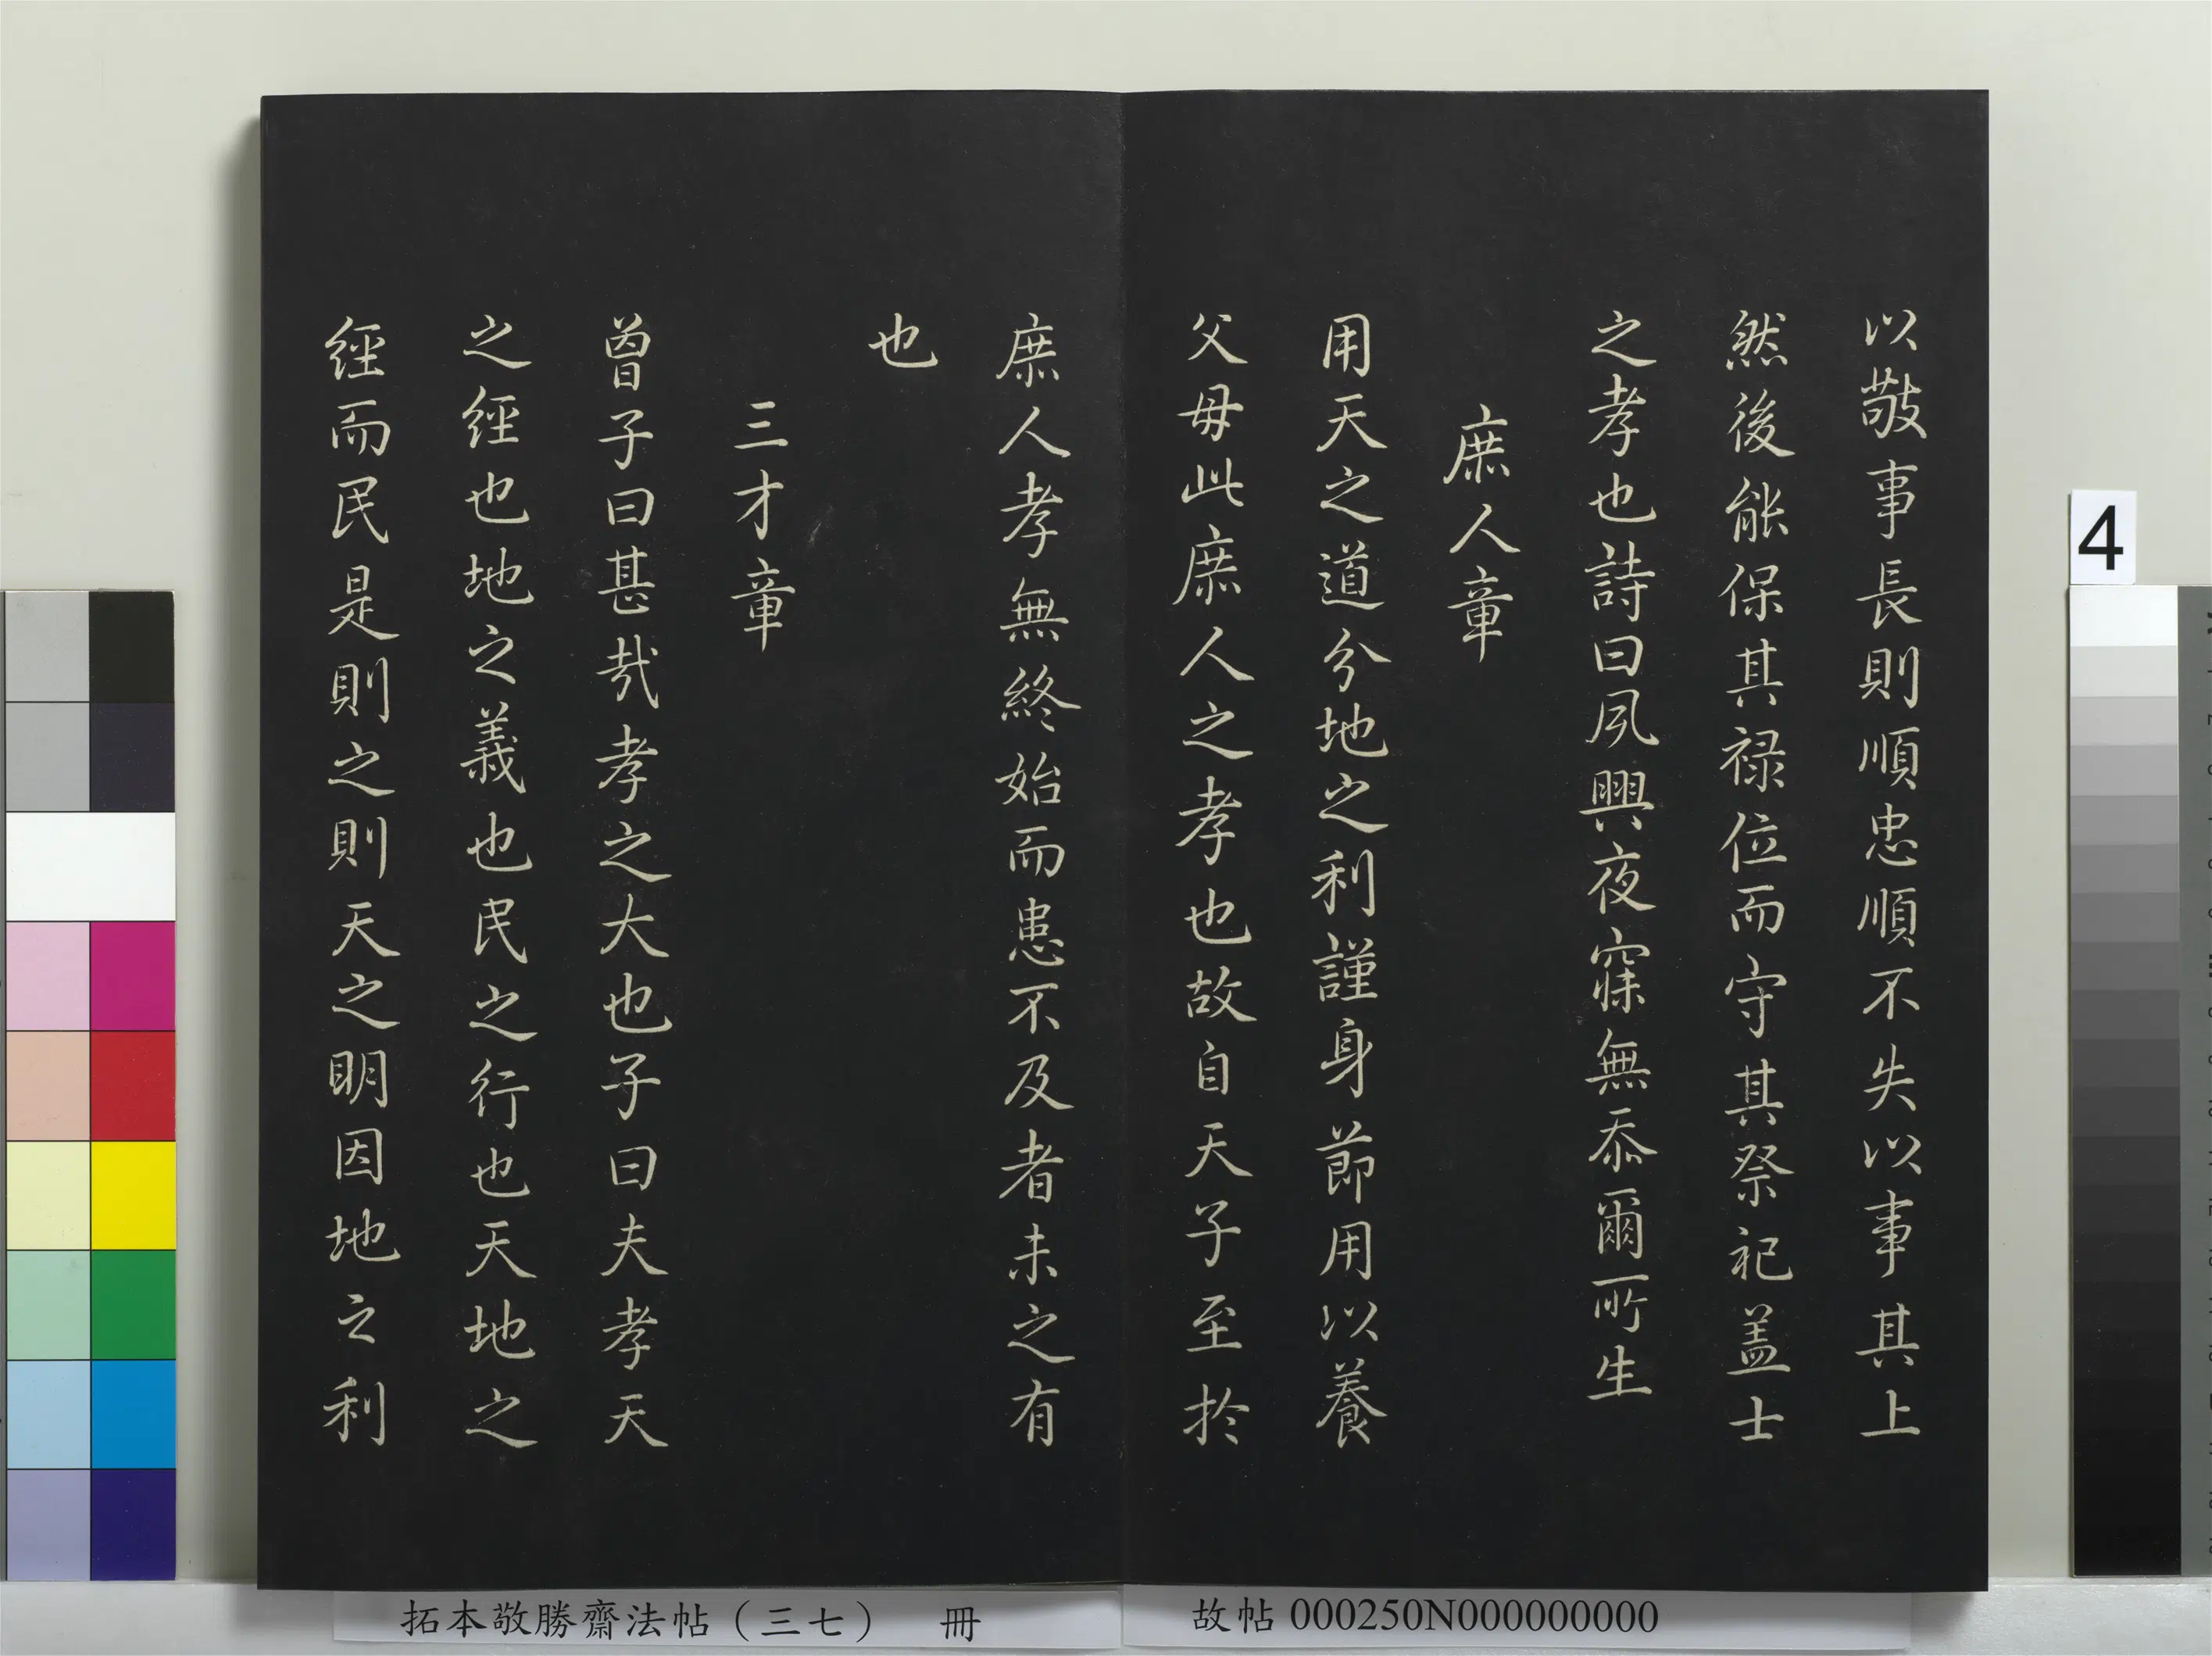 以敬事長則順忠順不失以事其上
然後能保其祿位而守其祭祀蓋士
之孝也詩曰夙興夜寐無忝爾所生
庶人章
用天之道分地之利謹身節用以養
父母此庶人之孝也故自天子至於
庶人孝無終始而患不及者未之有
也
三才章
曾子曰甚哉孝之大也子曰夫孝天
之經也地之義也民之行也天地之
經而民是則之則天之明因地之利
4
拓本敬勝齋法帖（三七） 冊
故帖 000250N000000000